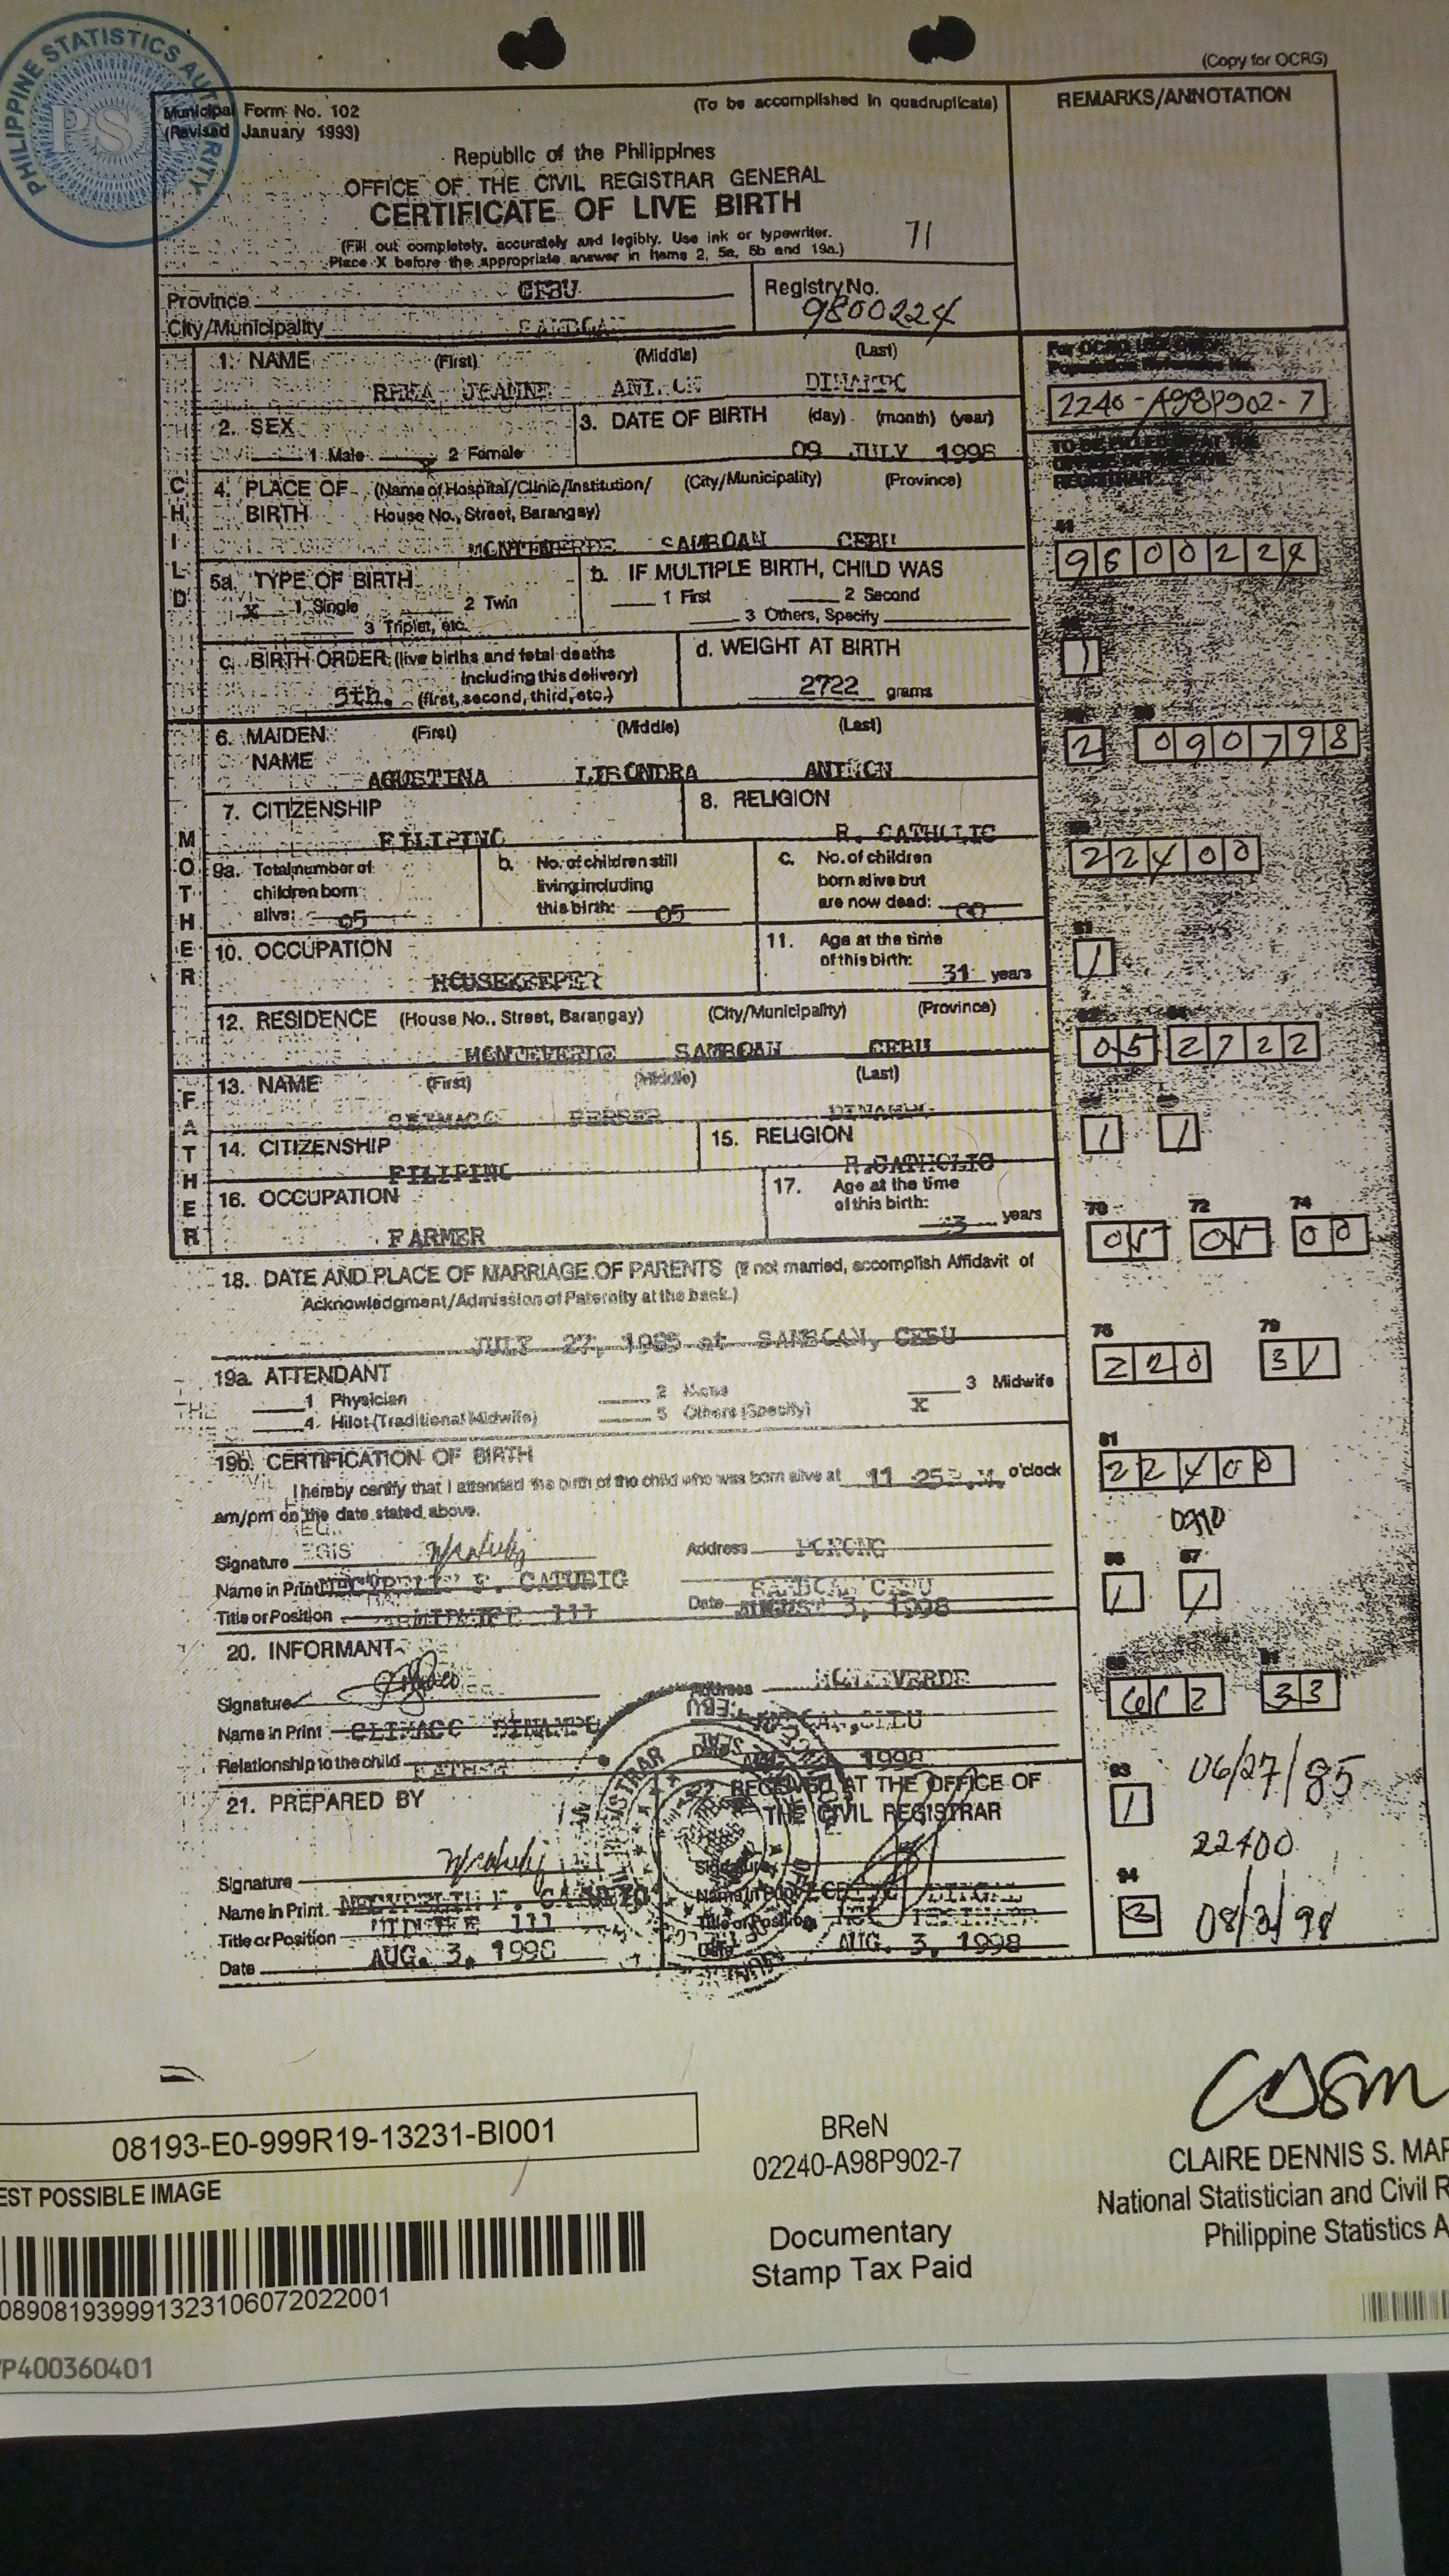 (Copy for OCRG)
PHILIPPINE STATISTICS AUTHORITY
PSA
Municipal Form No. 102
(To be accomplished in quadruplicate)
REMARKS/ANNOTATION
(Revised January 1993)
Republic of the Philippines
OFFICE OF THE CIVIL REGISTRAR GENERAL
CERTIFICATE OF LIVE BIRTH
71
(Fill out completely, accurately and legibly. Use ink or typewriter.
Place X before the appropriate answer in items 2, 5a, 5b and 19a.)
Province CEBU
Registry No.
9800224
City/Municipality
1. NAME (First) (Middle) (Last)
JEANNE
2240-A98P902-7
2. SEX
3. DATE OF BIRTH (day) (month) (year)
1 Male X 2 Female
09 JULY 1998
TO BE FILLED UP AT THE
OFFICE OF THE CIVIL
REGISTRAR
CHILD
4. PLACE OF BIRTH (Name of Hospital/Clinic/Institution/ (City/Municipality) (Province)
House No., Street, Barangay)
MONTEVERDE SAMBOAN CEBU
9800224
5a. TYPE OF BIRTH
b. IF MULTIPLE BIRTH, CHILD WAS
X 1 Single 2 Twin
1 First 2 Second
3 Triplet, etc.
3 Others, Specify
c. BIRTH ORDER (live births and fetal deaths
including this delivery)
5th. (first, second, third, etc.)
d. WEIGHT AT BIRTH
2722 grams
1
6. MAIDEN NAME (First) (Middle) (Last)
2 090798
AGUSTINA LISONDRA ANTMON
7. CITIZENSHIP
8. RELIGION
FILIPINO
R. CATHOLIC
22400
MOTHER
9a. Total number of
children born
alive: 05
b. No. of children still
living including
this birth: 05
c. No. of children
born alive but
are now dead: 00
10. OCCUPATION
HOUSEKEEPER
11. Age at the time
of this birth:
31 years
1
12. RESIDENCE (House No., Street, Barangay) (City/Municipality) (Province)
MONTEVERDE SAMBOAN CEBU
05 2722
FATHER
13. NAME (First) (Middle) (Last)
FERRER
14. CITIZENSHIP
15. RELIGION
FILIPINO
R.CATHOLIC
1 1
16. OCCUPATION
FARMER
17. Age at the time
of this birth:
years
70 72 74
05 05 00
18. DATE AND PLACE OF MARRIAGE OF PARENTS (If not married, accomplish Affidavit of
Acknowledgment/Admission of Paternity at the back.)
JULY 27, 1985 at SAMBOAN, CEBU
76 79
220 31
19a. ATTENDANT
1 Physician 2 Nurse X 3 Midwife
4 Hilot (Traditional Midwife) 5 Others (Specify)
19b. CERTIFICATION OF BIRTH
I hereby certify that I attended the birth of the child who was born alive at 11 25 o'clock
am/pm on the date stated above.
81
22400
Signature
Address
Name in Print
SAMBOAN CEBU
Title or Position MIDWIFE 111
Date AUGUST 3, 1998
86 87
1 1
20. INFORMANT
Signature
MONTEVERDE
Name in Print CLIMACO DINAMPO
Relationship to the child FATHER
33
21. PREPARED BY
22. RECEIVED AT THE OFFICE OF
THE CIVIL REGISTRAR
93
1
06/27/85
22400
Signature
Signature
Name in Print
Name in Print
Title or Position MIDWIFE 111
Title or Position
Date AUG. 3, 1998
Date AUG. 3, 1998
94
3
08/3/98
08193-E0-999R19-13231-BI001
BReN
02240-A98P902-7
EST POSSIBLE IMAGE
CLAIRE DENNIS S. MAP
National Statistician and Civil R
Philippine Statistics A
Documentary
Stamp Tax Paid
08908193999132310607​2022001
P400360401